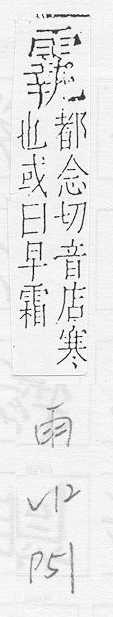 䨴
都念切音店寒
也或曰早霜
雨
V12
P51